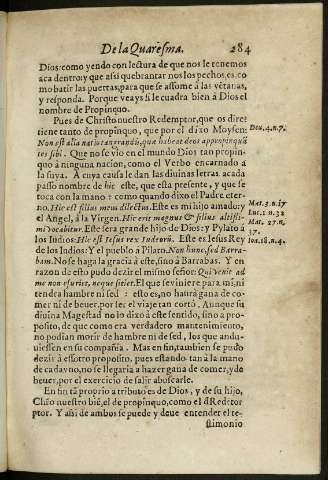 De la Quaresma. 284
Dios: como yendo con lectura de que nos le tenemos
aca dentro: y que assi quebrantar nos los pechos, es como
batir las puertas, para que se assome a las vẽtanas,
y responda. Porque veays si le cuadra bien à Dios el
nombre de Propinquo.
Pues de Christo nuestro Redemptor, que os dire
tiene tanto de propinquo, que por el dixo Moysen:
Non est alia natio tan grandis, quæ habeat deos appropinquã
tes sibi. Que no se vio en el mundo Dios tan propinquo
à ninguna nacion, como el Verbo encarnado à
la suya. A cuya causa le dan las diuinas letras acada
passo nombre de hic este, que esta presente, y que se
toca con la mano: como quando dixo el Padre eterno.
Hic est filius meus dilectus. Este es mi hijo amado: y
el Angel, à la Virgen. Hic erit magnus & filius altissimi
vocabitur. Este sera grande hijo de Dios: y Pylato à
los Iudios: Hic est Iesus rex Iudeorũ. Este es Iesus Rey
de los Iudios: Y el pueblo à Pilato. Non hunc, sed Barrabam.
No se haga la gracia à este, sino à Barrabas. Y en
razon de esto pudo dezir el mismo señor: Qui venit ad
me non esuriet, neque sitiet. El que se viniere para mi, ni
tendra hambre ni sed: esto es, no haurà gana de comer
ni de beuer, por ser el viaje tan corto. Aunque su
diuina Magestad no lo dixo à este sentido, sino a proposito,
de que como era verdadero mantenimiento,
no podian morir de hambre ni de sed, los que anduuiessen
en su compañia. Mas en fin, tambien se pudo
dezir à essotro proposito, pues estando tan à la mano
de cada vno, no se llegaria a hazer gana de comer, y de
beuer, por el exercicio de salir abuscarle.
En fin tã proprio atributo es de Dios, y de su hijo,
Chr̃o nuestro biẽ, el de propinquo, como el đ Redemptor.
Y assi de ambos se puede y deue entender el testimonio
Deu. 4. n. 7.
Mat. 3. n. 17
Luc. 1. n. 32
Mat. 27. n.
37.
Ioa. 18. n. 4.